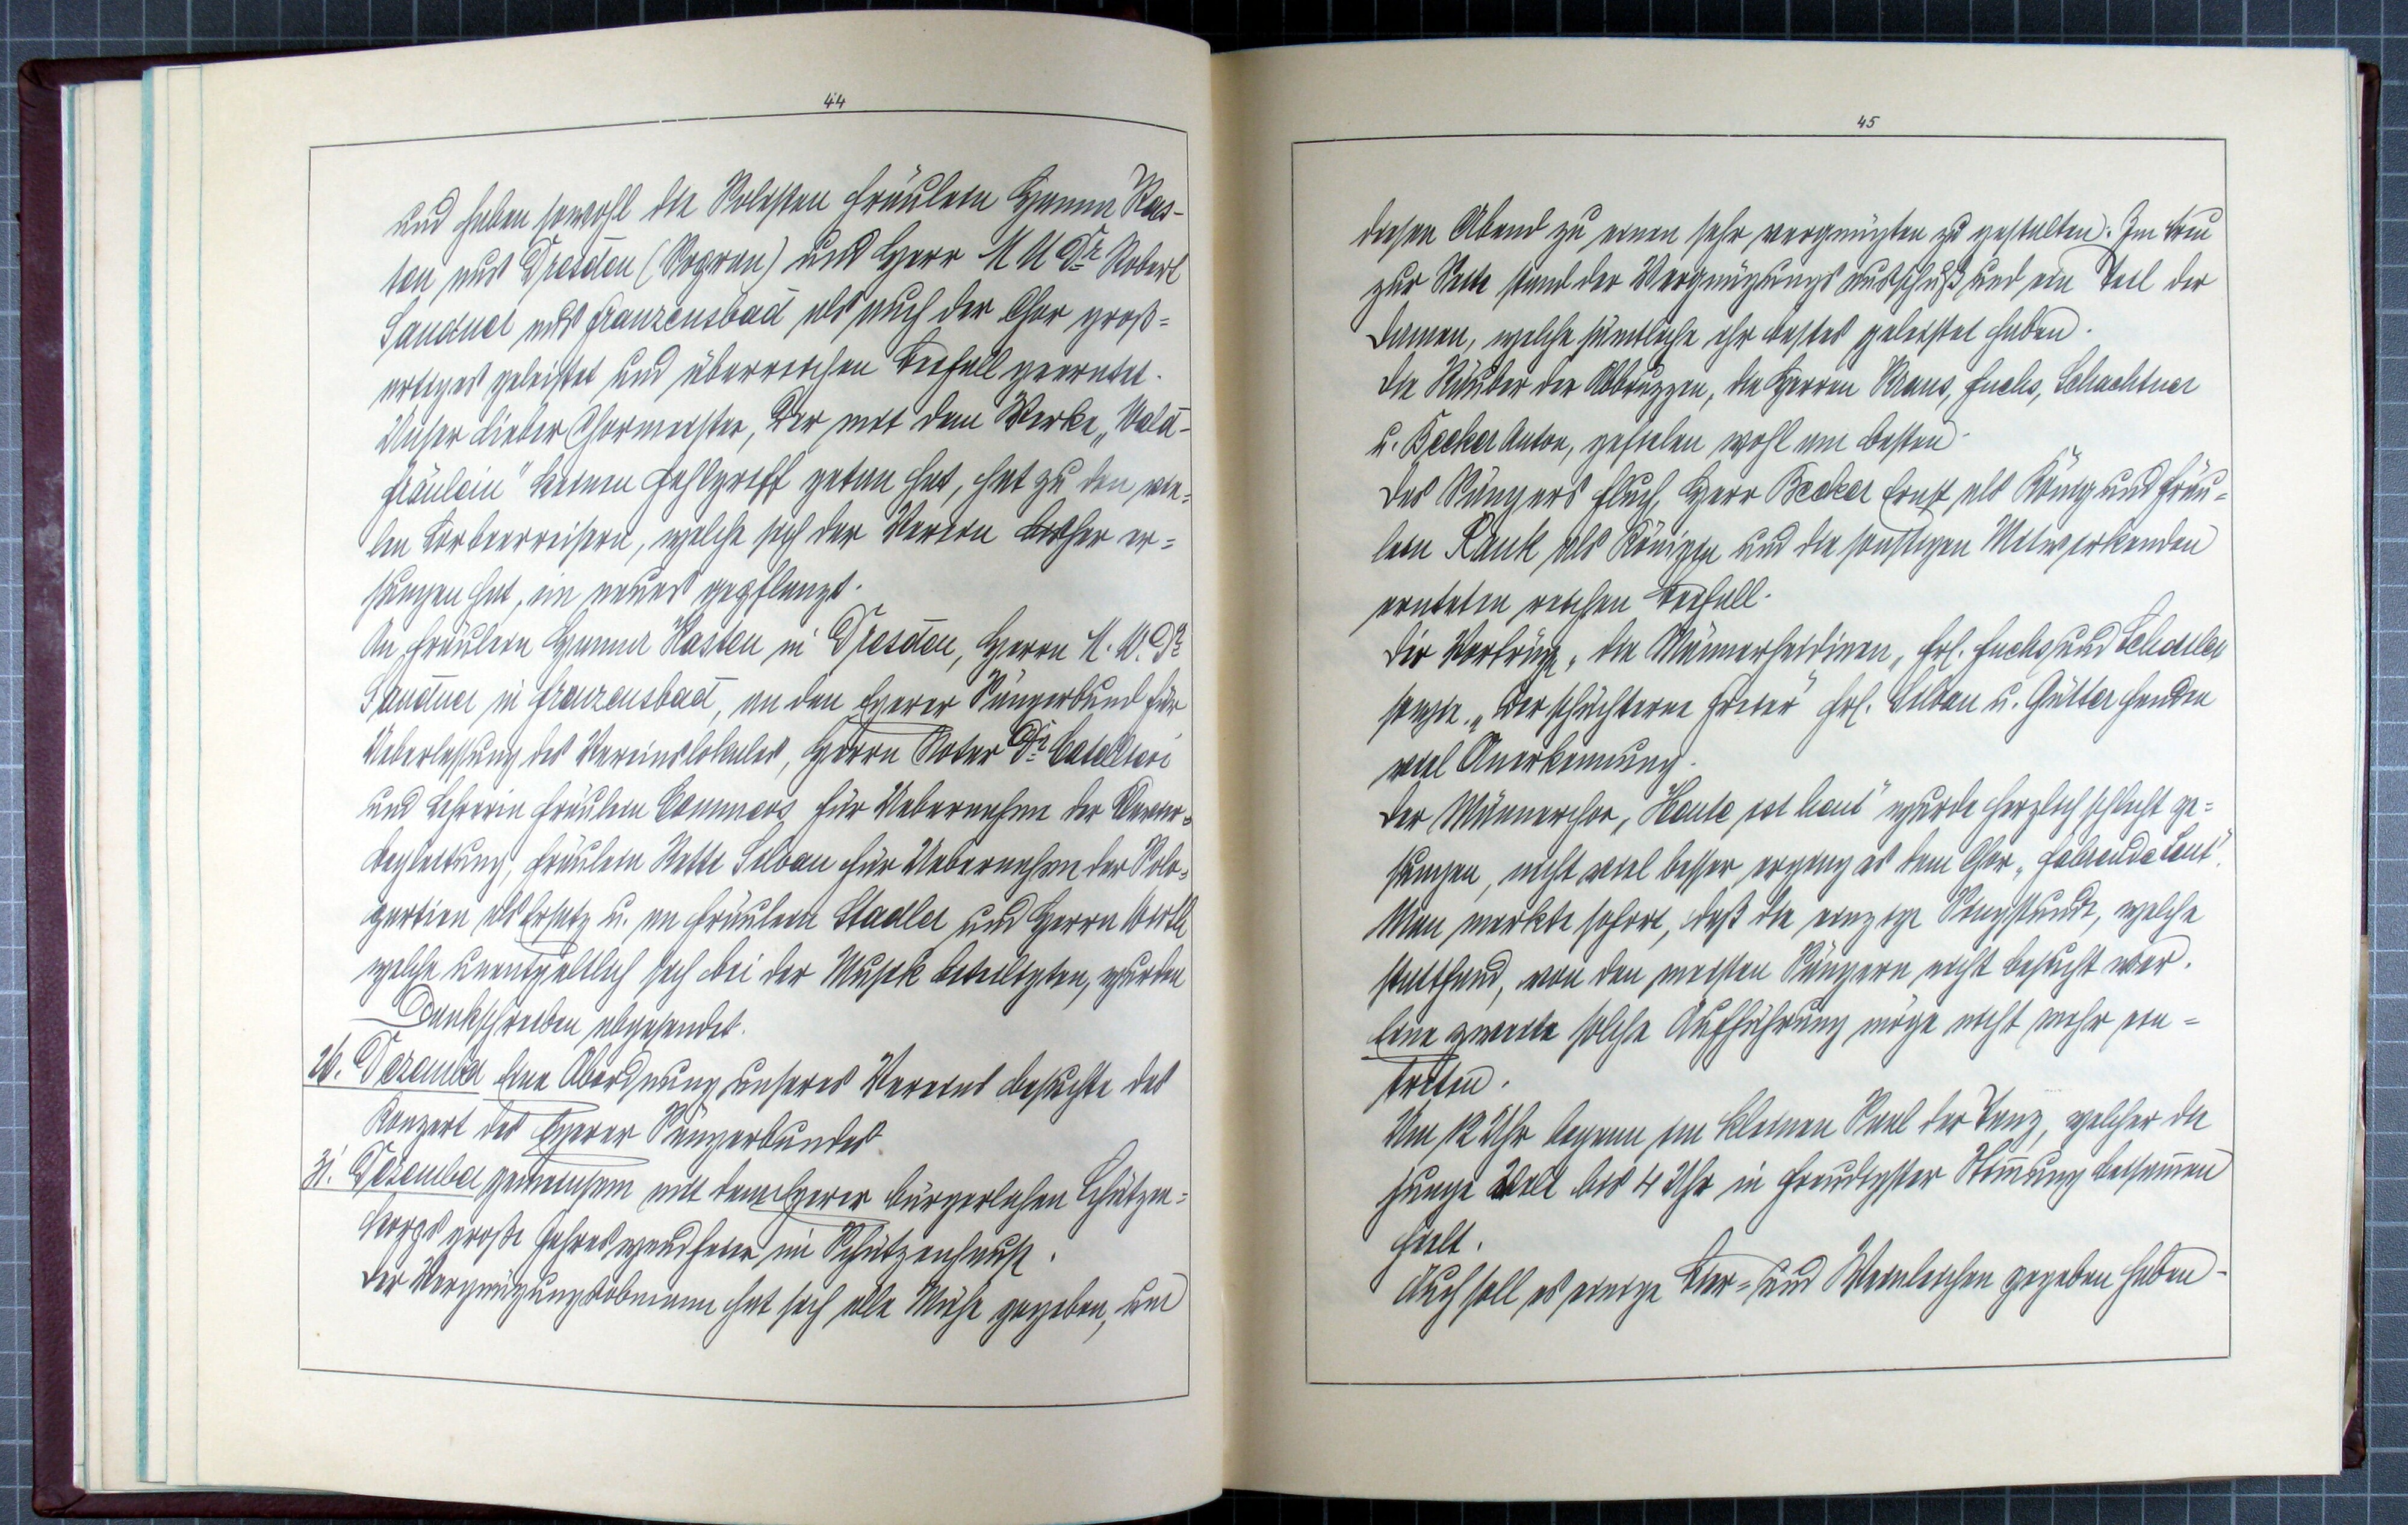 44
und haben sowohl die Solisten Fräulein Hanna Kas-
ten aus Dresden (Sopran) und Herr M U Dr. Robert
Sandner aus Franzensbad als auch der Chor groß=
artiges geleistet und überreichen Beifall geerntet.
Unser lieber Chormeister, der mit dem Werke „Wald-
fräulein" keinen Fehlgriff getan hat, hat zu den vie=
len Lorbeerreisern, welche sich der Verein bisher er=
sungen hat, ein neues gepflanzt.
An Fräulein Hanna Kasten in Dresden, Herrn M. U. Dr.
Sandner in Franzensbad, an den Egerer Sängerbund für
Ueberlassung des Vereinslokales, Herrn Notar Dr.
und Lehrerin Fräulein Commers für Uebernahme der Klavier=
begleitung, Fräulein Netti Silban für Uebernahme der Solo=
partien als Ersatz u. an Fräulein Stadler und Herrn Wirth
welche unentgeltlich sich bei der Musik beteiligten, wurden
Dankschreiben abgesendet.
26. Dezember Eine Abordnung unseres Vereines besuchte das
Konzert des Egerer Sängerbundes.
31. Dezember gemeinsam mit dem Egerer bürgerlichen Schützen=
korps große Jahreswendfeier im Schützenhause.
Der Vergnügungsobmann hat sich alle Mühe gegeben, um
45
diesen Abend zu einen sehr vergnügten zu gestalten. Im treu
zur Seite stand der Vergnügungsausschuß und ein Teil der
Damen, welche sämtliche ihr bestes geleistet haben.
Die Räuber der Abbruzzen, die Herren Kraus, Fuchs, Schachtner
u. Becker Anton, gefielen wohl am besten.
Des Sängers Fluch, Herr Becker Ernst als König und Fräu=
lein Rank als Königin und die sonstigen Mitwirkenden
ernteten reichen Beifall.
Die Vorträge „die Männerfeidinen„ Frl. Fuchs und
sowie „Der schüchterne Freier" Frl. Silban u. Gütter fanden
viel Anerkennung.
Der Männerchor „Heute ist heut" wurde herzlich schlecht ge=
sungen, nicht viel besser erging es dem Chor „Fahrende Leut".
Man merkte sofort, daß die einzige Singstunde, welche
stattfand, von den meisten Sängern nicht besucht war.
Eine zweite solche Aufführung möge nicht mehr ein=
treten.
Um 12 Uhr begann im kleinen Saal der Tanz, welcher die
junge Welt bis 4 Uhr in freudigster Stimung beisamen
hielt.
Auch soll es einige Bier= und Weinleichen gegeben haben.